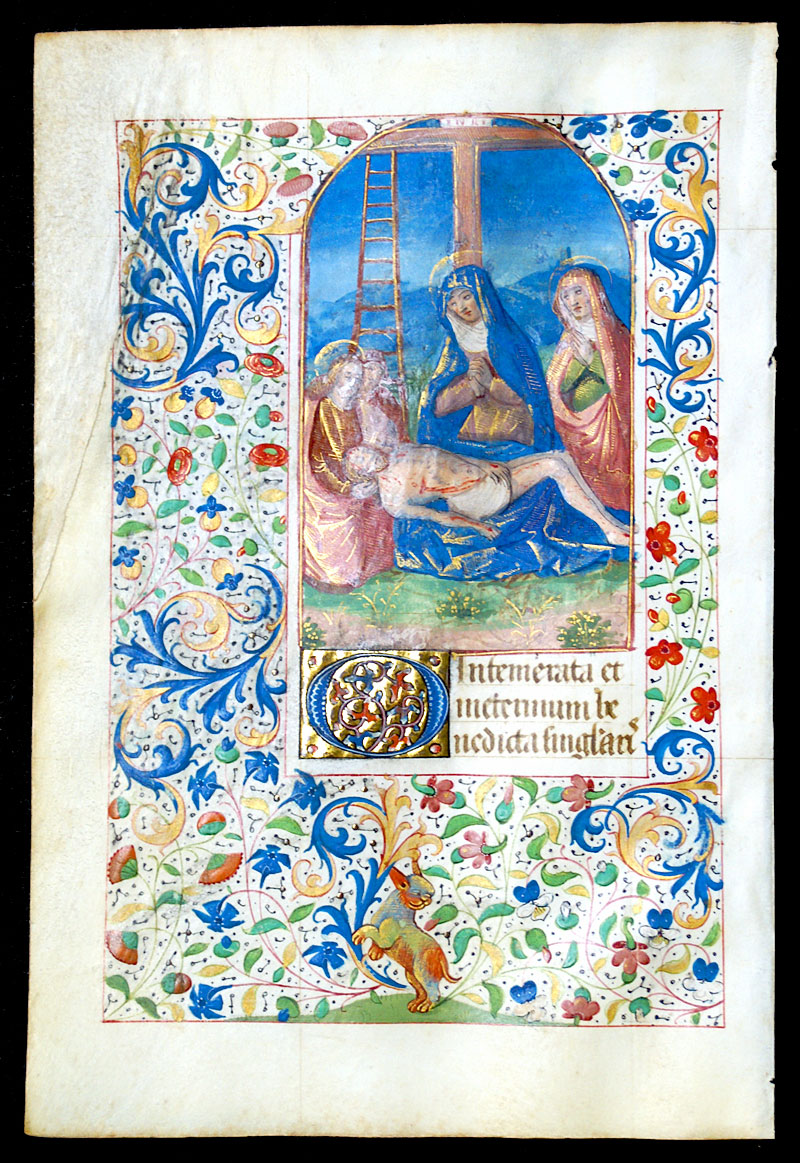 O Intemerata et
ineternum be
nedicta singlari